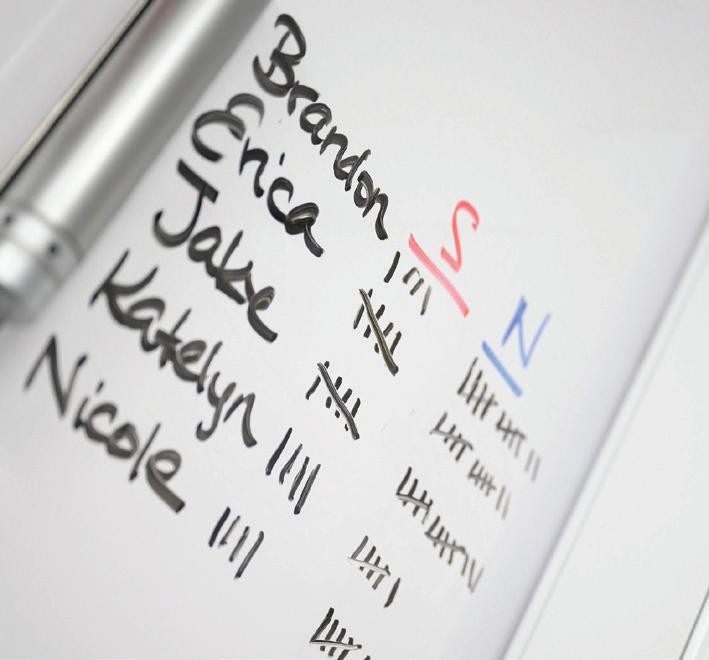 S N
Brandon
Erica
Jake
Katelyn
Nicole